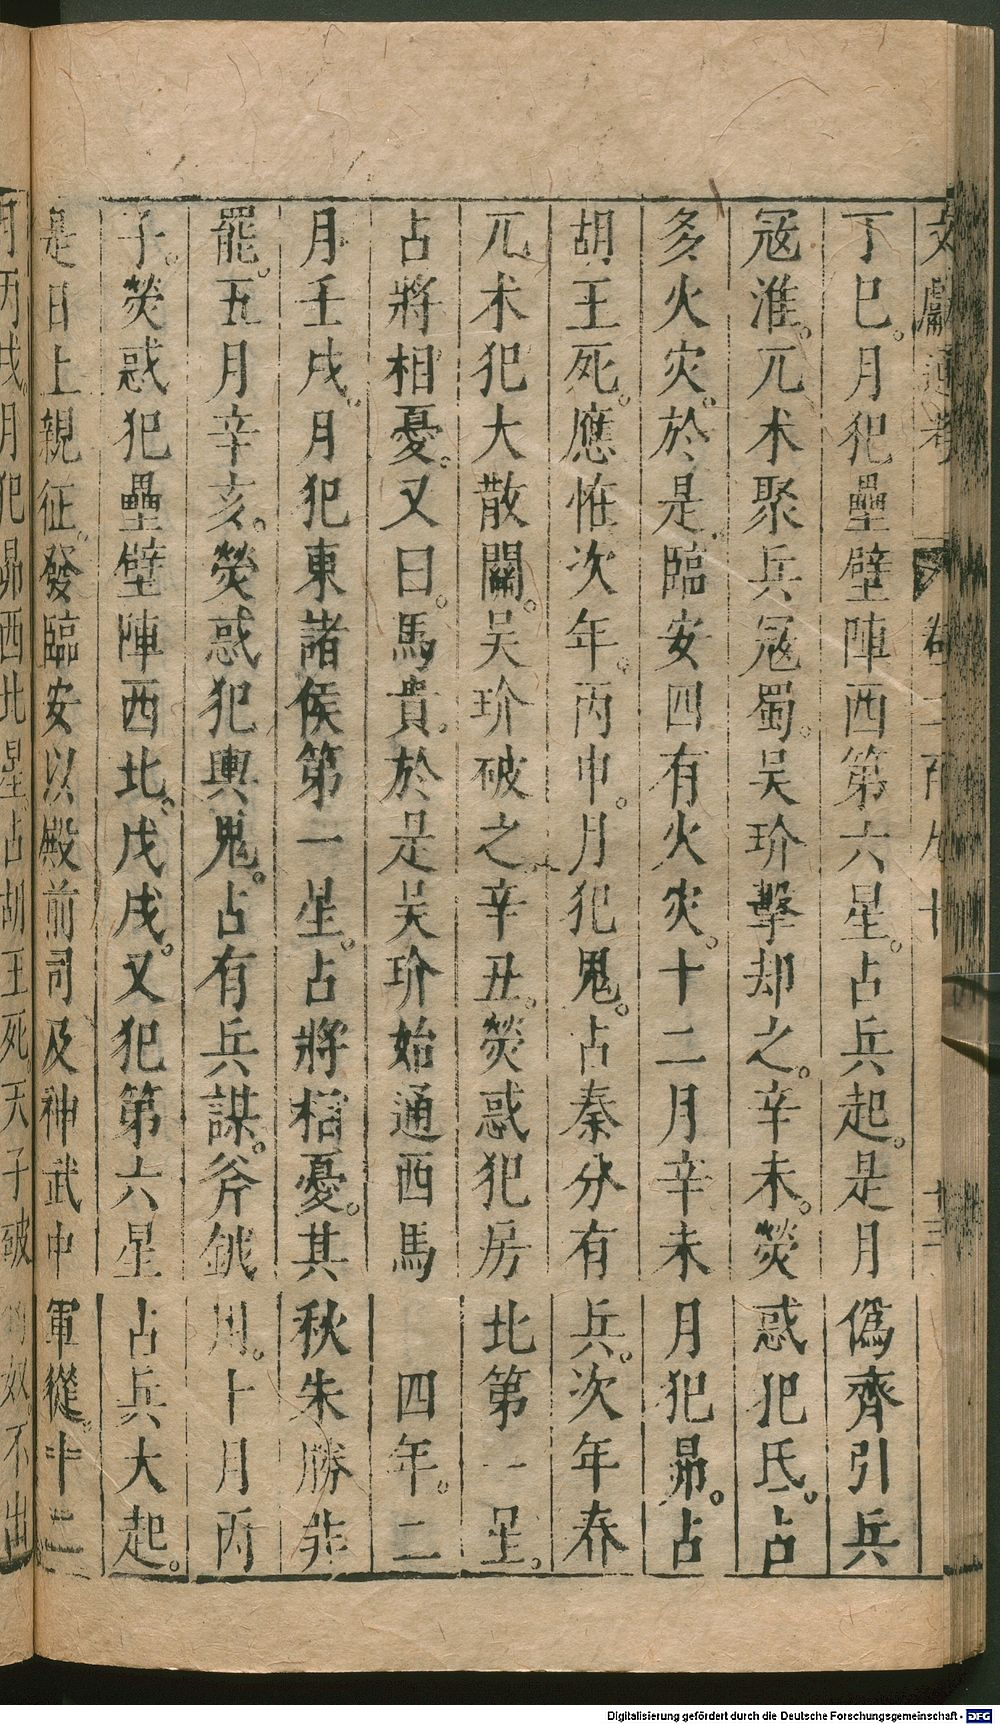 文獻通考 卷二百九十 十三
丁巳。月犯壘壁陣西第六星。占兵起。是月僞齊引兵
冦淮。兀术聚兵冦蜀。吴玠擊却之。辛未。熒惑犯氐。占
多火灾。於是臨安四有火灾。十二月辛未月犯昴。占
胡王死。應惟次年。丙申。月犯鬼。占秦分有兵。次年春
兀术犯大散關。吴玠破之辛丑。熒惑犯房北第一星。
占將相憂。又曰。馬貴。於是吴玠始通西馬 四年。二
月壬戌。月犯東諸侯第一星。占將相憂。其秋朱勝非
罷。五月辛亥。熒惑犯輿鬼。占有兵謀。斧鉞用。十月丙
子。熒惑犯壘壁陣西北。戊戌。又犯第六星占兵大起。
是日上親征。發臨安以殿前司及神武中軍從。十二
月丙戌。月犯昴西北星占胡王死。天子破匈奴。不出
Digitalisierung gefördert durch die Deutsche Forschungsgemeinschaft - DFG